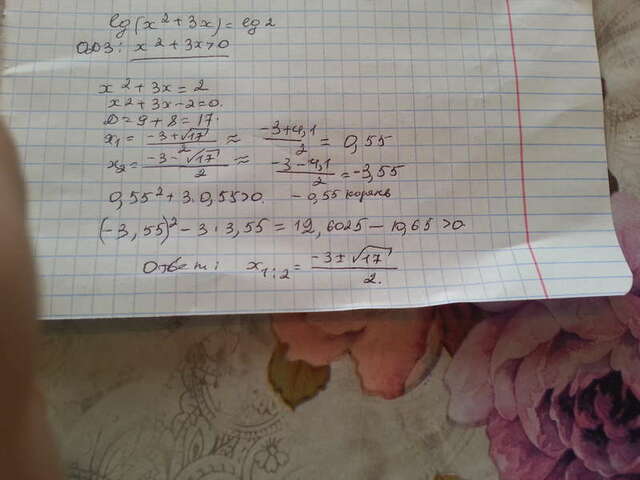 lg(x2+3x)=lg2
ОДЗ: x2+3x>0
x2+3x=2
x2+3x-2=0.
D=9+8=17
x1= -3+√17/2 ≈ -3+4,1/2 = 0,55
x2= -3-√17/2 ≈ -3-4,1/2 = -3,55
0,55²+3.0,55>0. -0,55 корень
(-3,55)²-3·3,55=12,6025-10,65>0
Ответ: x1;2= -3±√17/2.